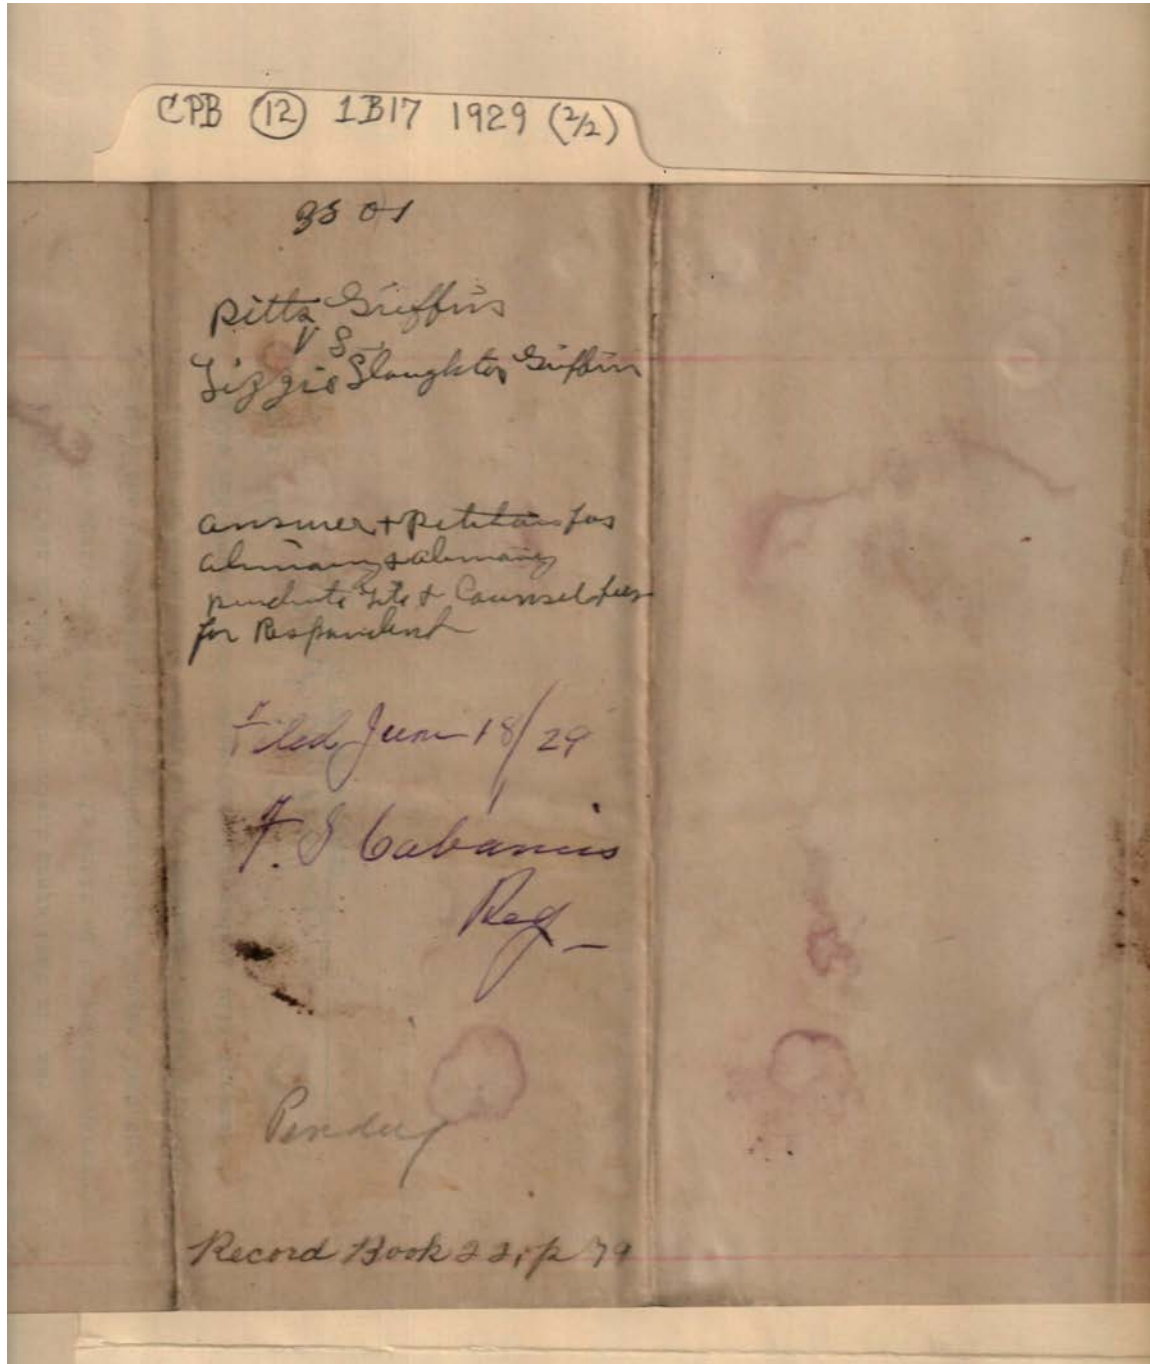 CPB (12) 1B17 1929 (2/2)
3501
Pitts Griffin
VS.
Lizzie Slaughter Griffin
answer + Petition for
alimony & alimony
pendente lite & Counsel fees
for Respondent
Filed June 18/29
F. S Cabaniss
Reg
Pending
Record Book 22, p 79